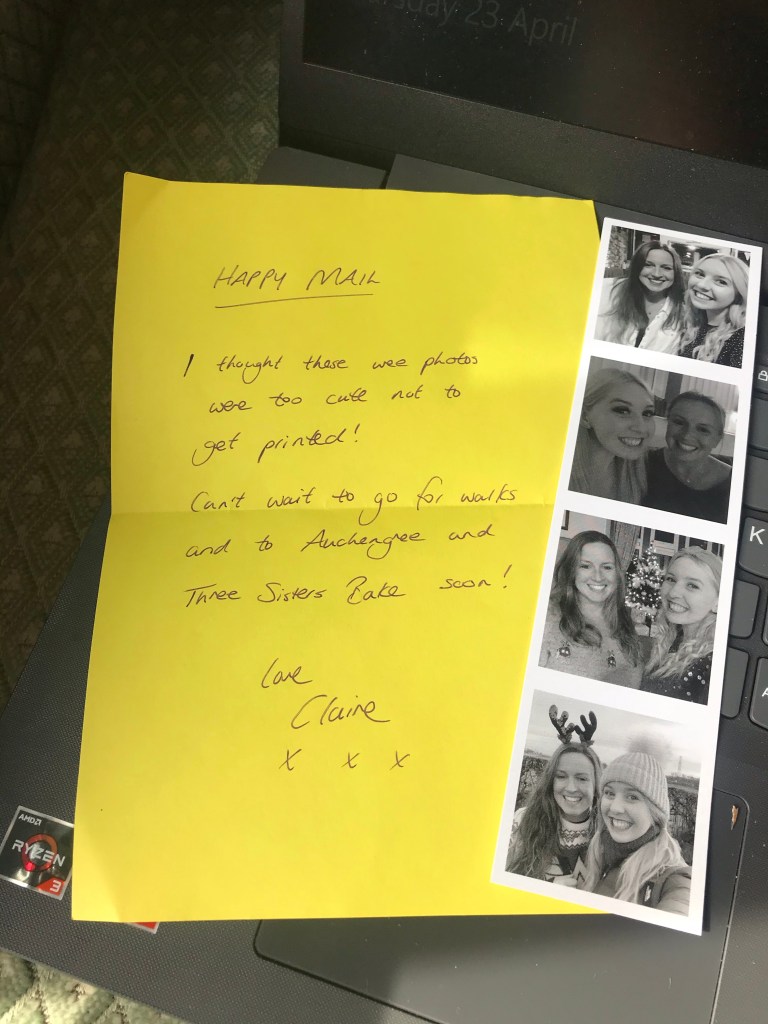 sday 23 April
HAPPY MAIL
I thought these wee photos
were too cute not to
get printed!
Can't wait to go for walks
and to Auchengree and
Three Sisters Bake soon!
Love
Claire
x x x
K
AMD
RYZEN
3